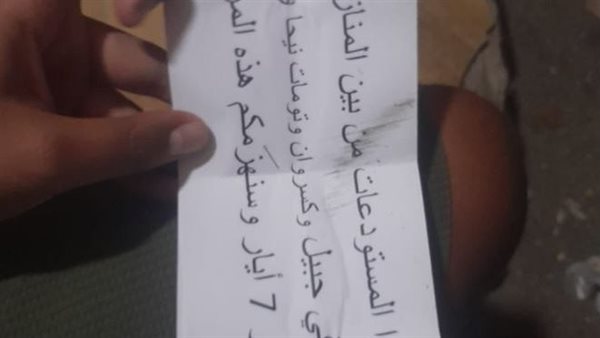 ا المستودعات من بين المناز
في جبيل وكسروان وتومات نيحا و
7 أيار وسنهزمكم هذه المر